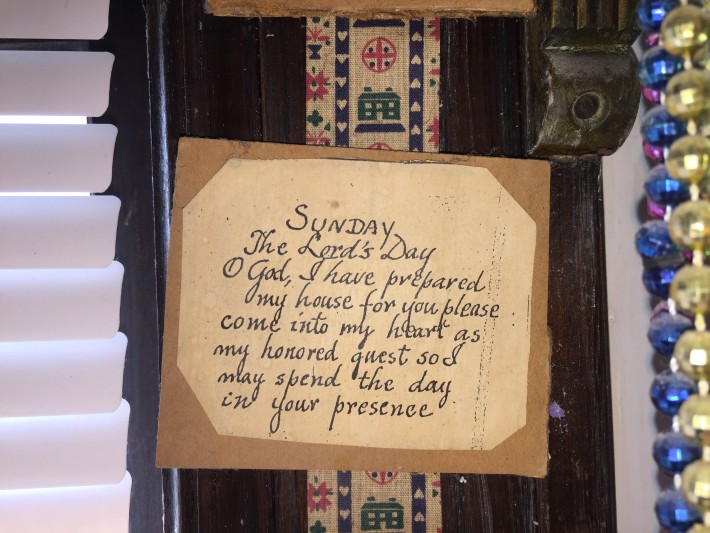 SUNDAY
The Lord's Day
O God, I have prepared
my house for you please
come into my heart as
my honored guest so I
may spend the day
in your presence